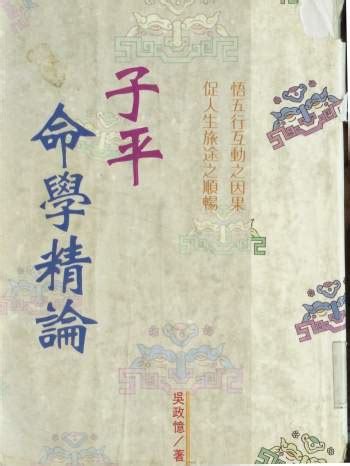 子平
命學精論
悟五行互動之因果
促人生旅途之順暢
吳政憶/著